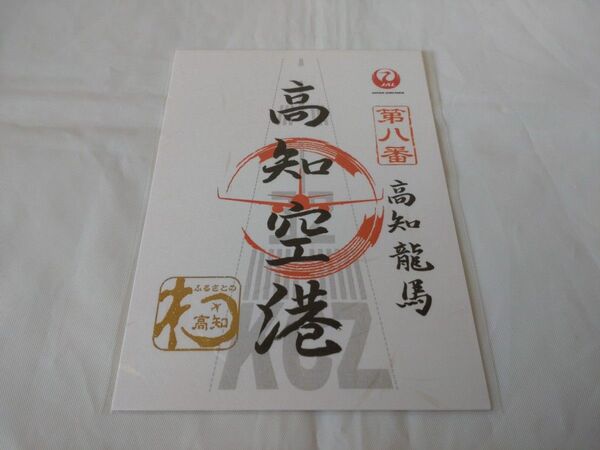 JAL
JAPAN AIRLINES
第八番
高知龍馬
高知空港
KCZ
ふるさとの
高知